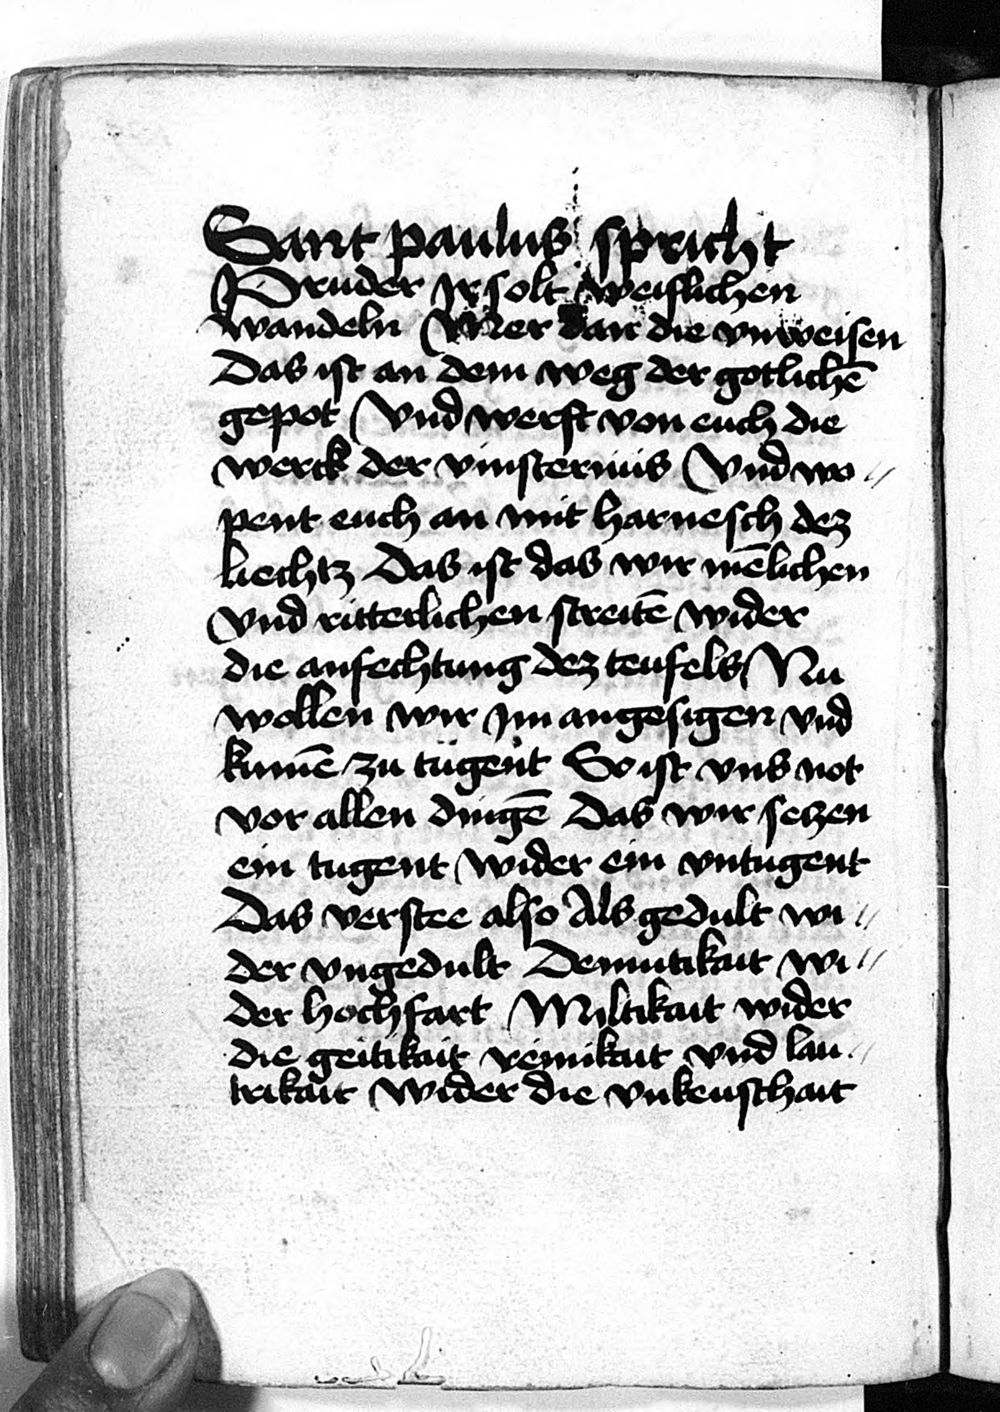 Sant paulus spricht
Pruder Ir solt weislichen
wandeln Mer dan die vnweisen
Das ist an dem weg der gotlichē
gepot Vnd werft von euch die
werck der vinsternus Vnd wo //
pent euch an mit harnesch dez
liechtz Das ist das wir mēlichen
Vnd ritterlichen streitē wider
die anfechtung dez teufels Nu
wollen wir Im angesigen vnd
kumē zu tugent So ist vns not
vor allen dingē Das wir seczen
ein tugent wider ein vntugent
Das verstee also Als gedult wi //
der vngedult Demutikait wi //
der hochfart Miltikait wider
die geitikait reinikait vnd lau //
trikait wider die vnkeuschait